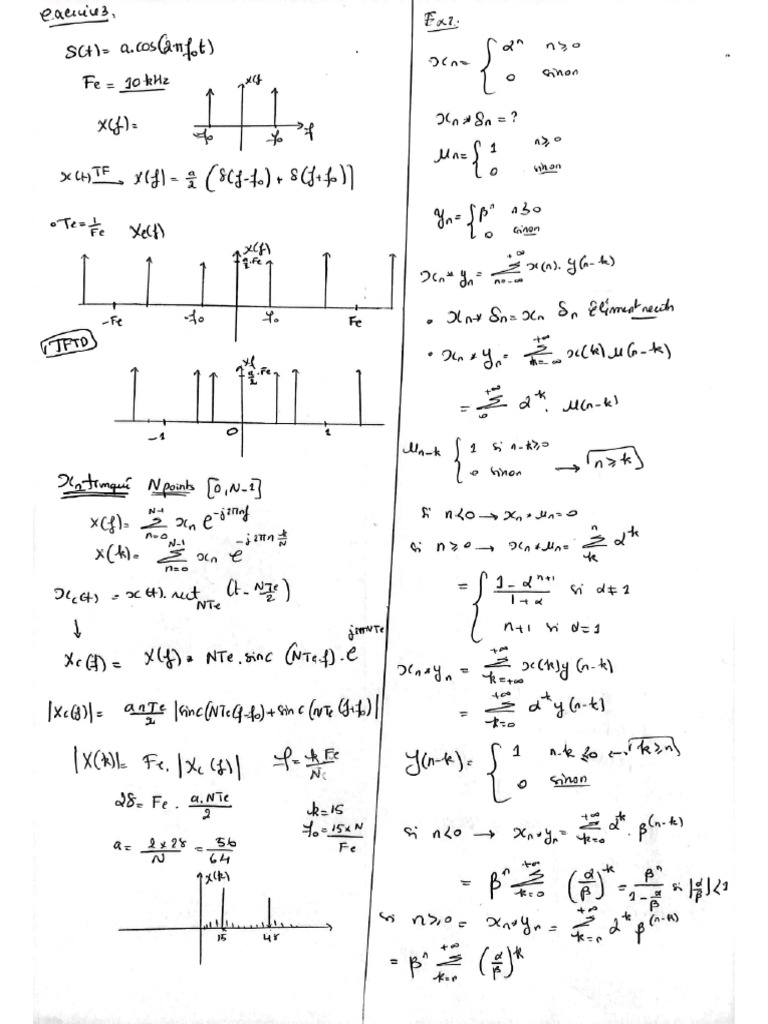 Exercice 3,
S(t) = a.cos(2πf₀t)
Fe = 10 kHz
X(f)
X(f) =
-f₀ f₀ f
x(t) TF→ X(f) = a/2 (δ(f-f₀) + δ(f+f₀))
∘ Te = 1/Fe Xe(f)
X(f)
a/2 . Fe
-Fe -f₀ f₀ Fe
TFTD
Xf
a/2 . Fe
-1 0 1
xn tronqué N points [0, N-1]
X(f) = Σ_{n=0}^{N-1} xn e^{-j2πnf}
X(k) = Σ_{n=0}^{N-1} xn e^{-j2πn k/N}
xc(t) = x(t). rect_{NTe} (t - NTe/2)
↓
Xc(f) = X(f) * NTe . sinc (NTe.f) . e^{jπNTe}
|Xc(f)| = a n Te/2 |sinc(NTe(f-f₀) + sinc(NTe(f+f₀)|
|X(k)| = Fe. |Xc(f)| f = k Fe/N
28 = Fe . a.NTe/2 k = 15
a = 2 x 28/N = 56/64 f₀ = 15 x N/Fe
X(k)
15 48
Ex 2.
xn = { αⁿ n ≥ 0
0 sinon
xn * δn = ?
μn = { 1 n ≥ 0
0 sinon
yn = { βⁿ n ≤ 0
0 sinon
xn * yn = Σ_{n=-∞}^{+∞} x(n). y(n-k)
• xn * δn = xn δn élément neutre
• xn * yn = Σ_{k=-∞}^{+∞} x(k) μ(n-k)
= Σ_{0}^{+∞} α^k . μ(n-k)
μn-k { 1 si n-k ≥ 0
0 sinon → n ≥ k
si n < 0 → xn * μn = 0
si n ≥ 0 → xn * μn = Σ_{k}^{n} α^k
= { 1 - α^{n+1}/1 + α si α ≠ 1
n+1 si α = 1
xn * yn = Σ_{k=+∞}^{+∞} x(k) y(n-k)
= Σ_{k=0}^{+∞} α^k y(n-k)
y(n-k) = { 1 n-k ≤ 0 ← k ≥ n
0 sinon
si n < 0 → xn * yn = Σ_{k=0}^{+∞} α^k . β^{(n-k)}
= βⁿ Σ_{k=0}^{+∞} (α/β)^k = βⁿ/(1 - α/β) si |α/β| < 1
si n ≥ 0 = xn * yn = Σ_{k=n}^{+∞} α^k β^{(n-k)}
= βⁿ Σ_{k=n}^{+∞} (α/β)^k